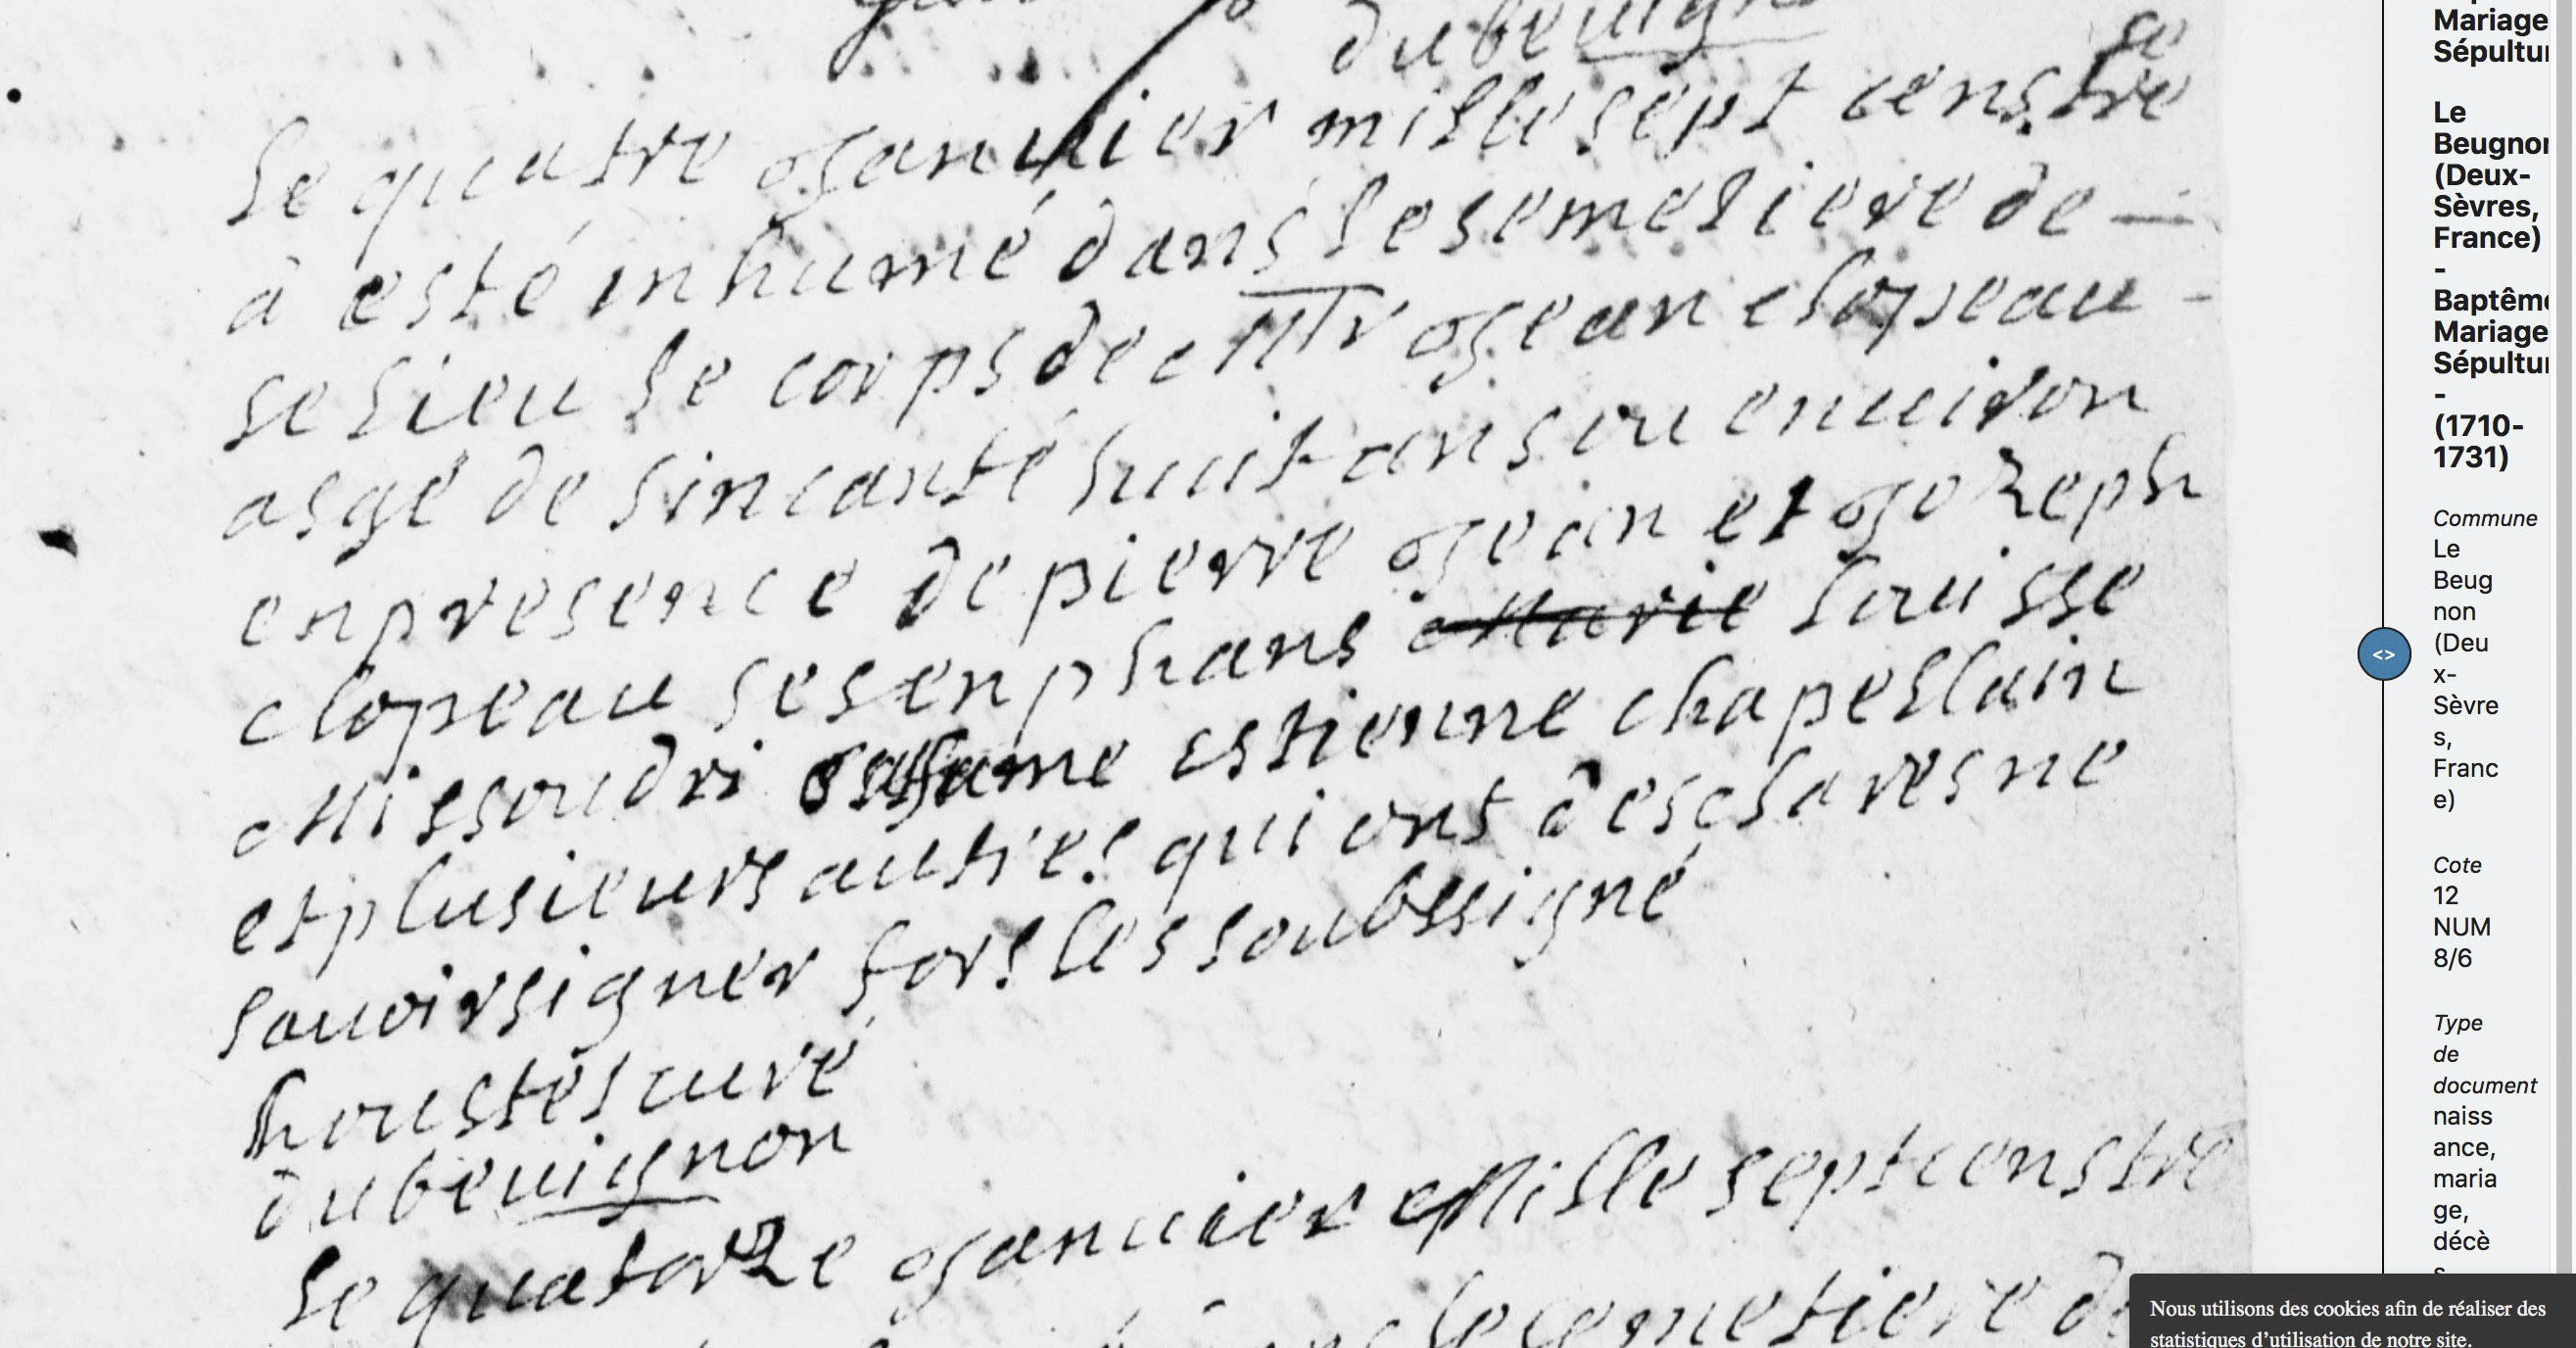 dubeuign
Le quatre Januier mille sept cens tre
se
à esté inhumé dans le semetiere de —
se lieu le corps de Mr Jean clopeau -
asgé de sincanté huit ans ou enuiron
en presence de pierre Jean et Jozeph
clopeau ses enphans Marie Louisse
Missoudri sa fame estienne chapellain
et plusieurs autres qui ont desclares ne
sauoir signer fors les soubssigné
houstés curé
du beuignon
Le quatorze Januier Mille sept cens tre
le cemetiere de
Mariage
Sépultu
Le
Beugnon
(Deux-
Sèvres,
France)
-
Baptême
Mariage
Sépultu
-
(1710-
1731)
Commune
Le
Beug
non
(Deu
x-
Sèvre
s,
Franc
e)
Cote
12
NUM
8/6
Type
de
document
naiss
ance,
maria
ge,
décè
s
<>
Nous utilisons des cookies afin de réaliser des
statistiques d’utilisation de notre site.